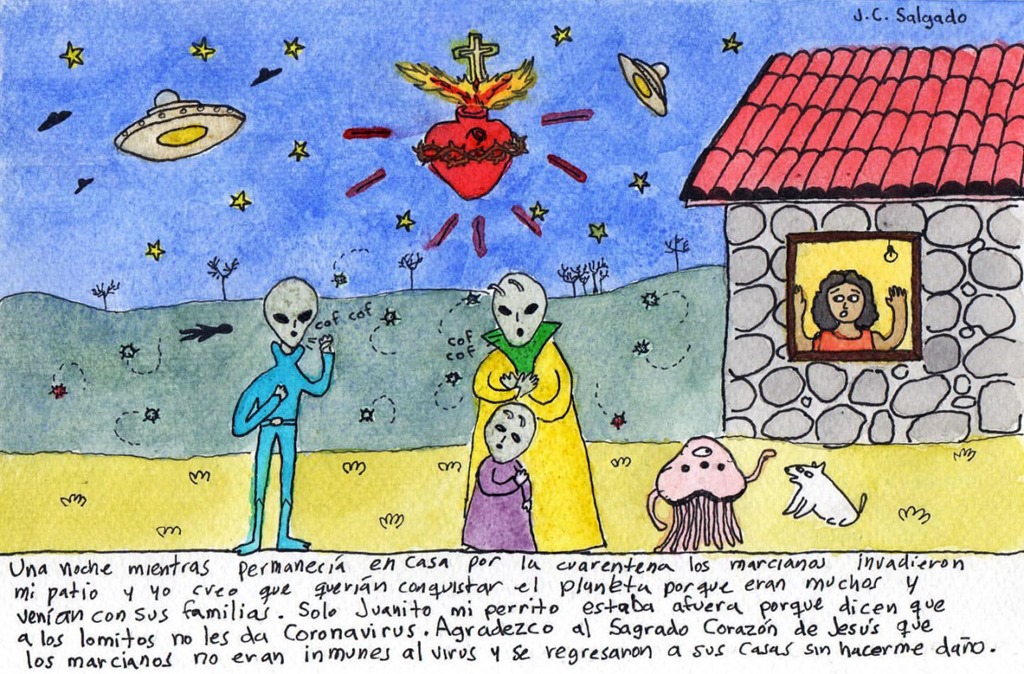 J.C. Salgado
cof cof
cof
cof
Una noche mientras permanecía en casa por la cuarentena los marcianos invadieron
mi patio y yo creo que querían conquistar el planeta porque eran muchos y
venían con sus familias. Solo Juanito mi perrito estaba afuera porque dicen que
a los lomitos no les da Coronavirus. Agradezco al Sagrado Corazón de Jesús que
los marcianos no eran inmunes al virus y se regresaron a sus casas sin hacerme daño.